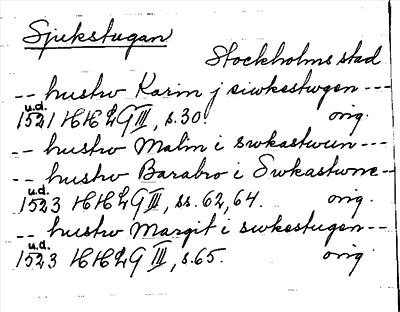 Sjukstugan
Stockholms stad
-- hustrv Karin j siwkestwgen ---
u.d.
1521 HHLG III, s. 30 orig.
-- hustrv Malin i swkastwun ---
-- hustrv Barabro i Swkastwne --
u.d.
1523 HHLG III, ss. 62, 64. orig.
-- hustrv Margit i swkestugen --
u.d.
1523 HHLG III, s. 65. orig.